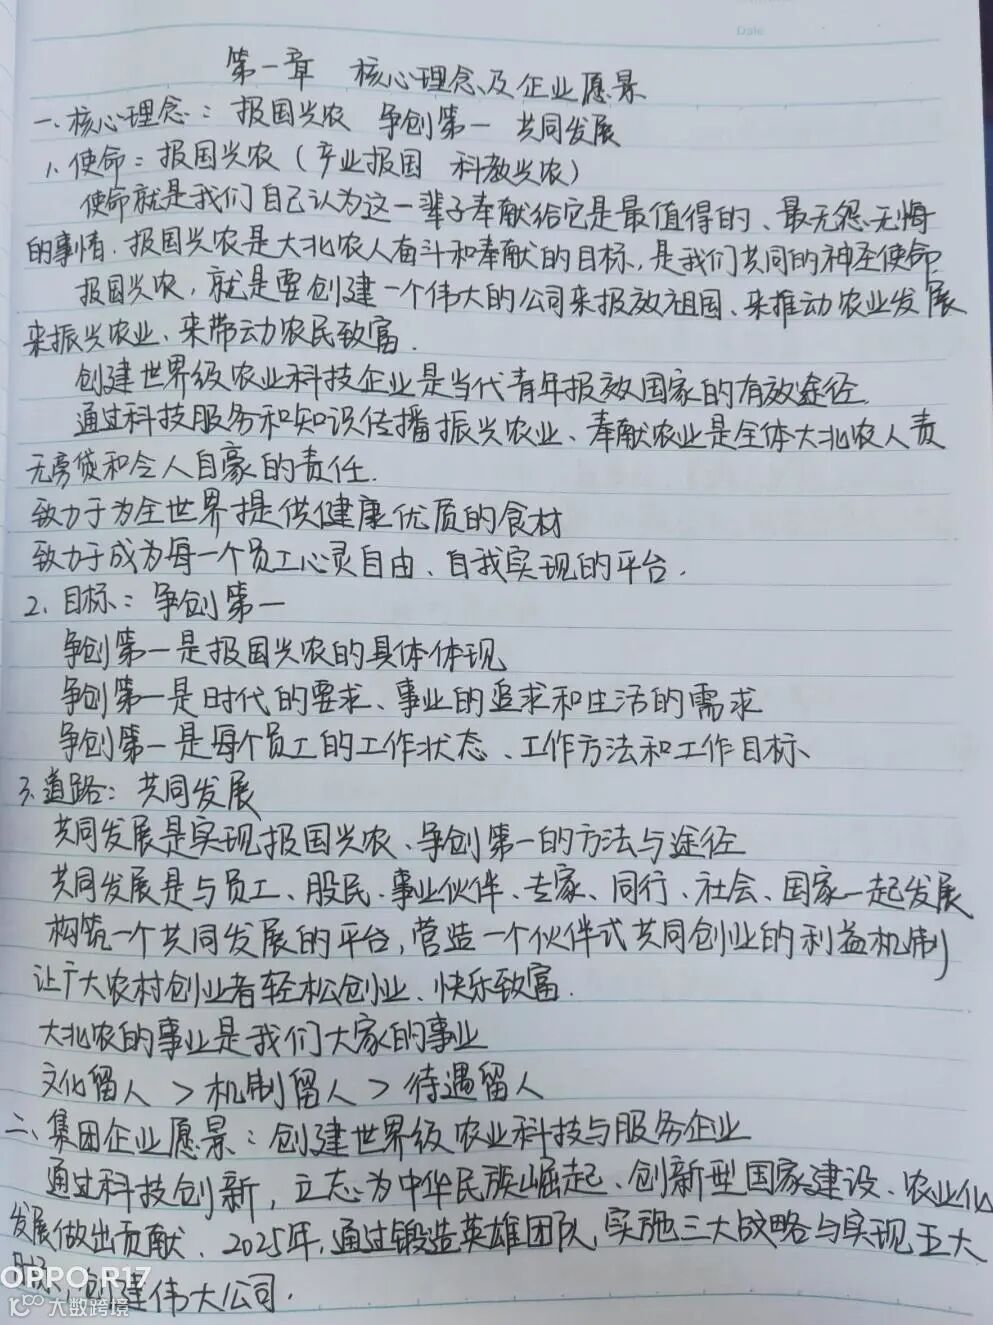 Date
第一章 核心理念及企业愿景
一、核心理念：报国兴农 争创第一 共同发展
1、使命：报国兴农（产业报国 科教兴农）
使命就是我们自己认为这一辈子奉献给它是最值得的、最无怨无悔
的事情．报国兴农是大北农人奋斗和奉献的目标，是我们共同的神圣使命
报国兴农，就是要创建一个伟大的公司来报效祖国、来推动农业发展
来振兴农业、来带动农民致富．
创建世界级农业科技企业是当代青年报效国家的有效途径．
通过科技服务和知识传播振兴农业、奉献农业是全体大北农人责
无旁贷和令人自豪的责任．
致力于为全世界提供健康优质的食材
致力于成为每一个员工心灵自由、自我实现的平台．
2、目标：争创第一
争创第一是报国兴农的具体体现
争创第一是时代的要求、事业的追求和生活的需求
争创第一是每个员工的工作状态、工作方法和工作目标、
3、道路：共同发展
共同发展是实现报国兴农、争创第一的方法与途径
共同发展是与员工、股民、事业伙伴、专家、同行、社会、国家一起发展
构筑一个共同发展的平台，营造一个伙伴式共同创业的利益机制
让广大农村创业者轻松创业、快乐致富．
大北农的事业是我们大家的事业
文化留人 > 机制留人 > 待遇留人
二、集团企业愿景：创建世界级农业科技与服务企业
通过科技创新，立志为中华民族崛起、创新型国家建设、农业化
发展做出贡献．2025年，通过锻造英雄团队，实施三大战略与实现五大
目标，创建伟大公司．
OPPO R17
大数跨境